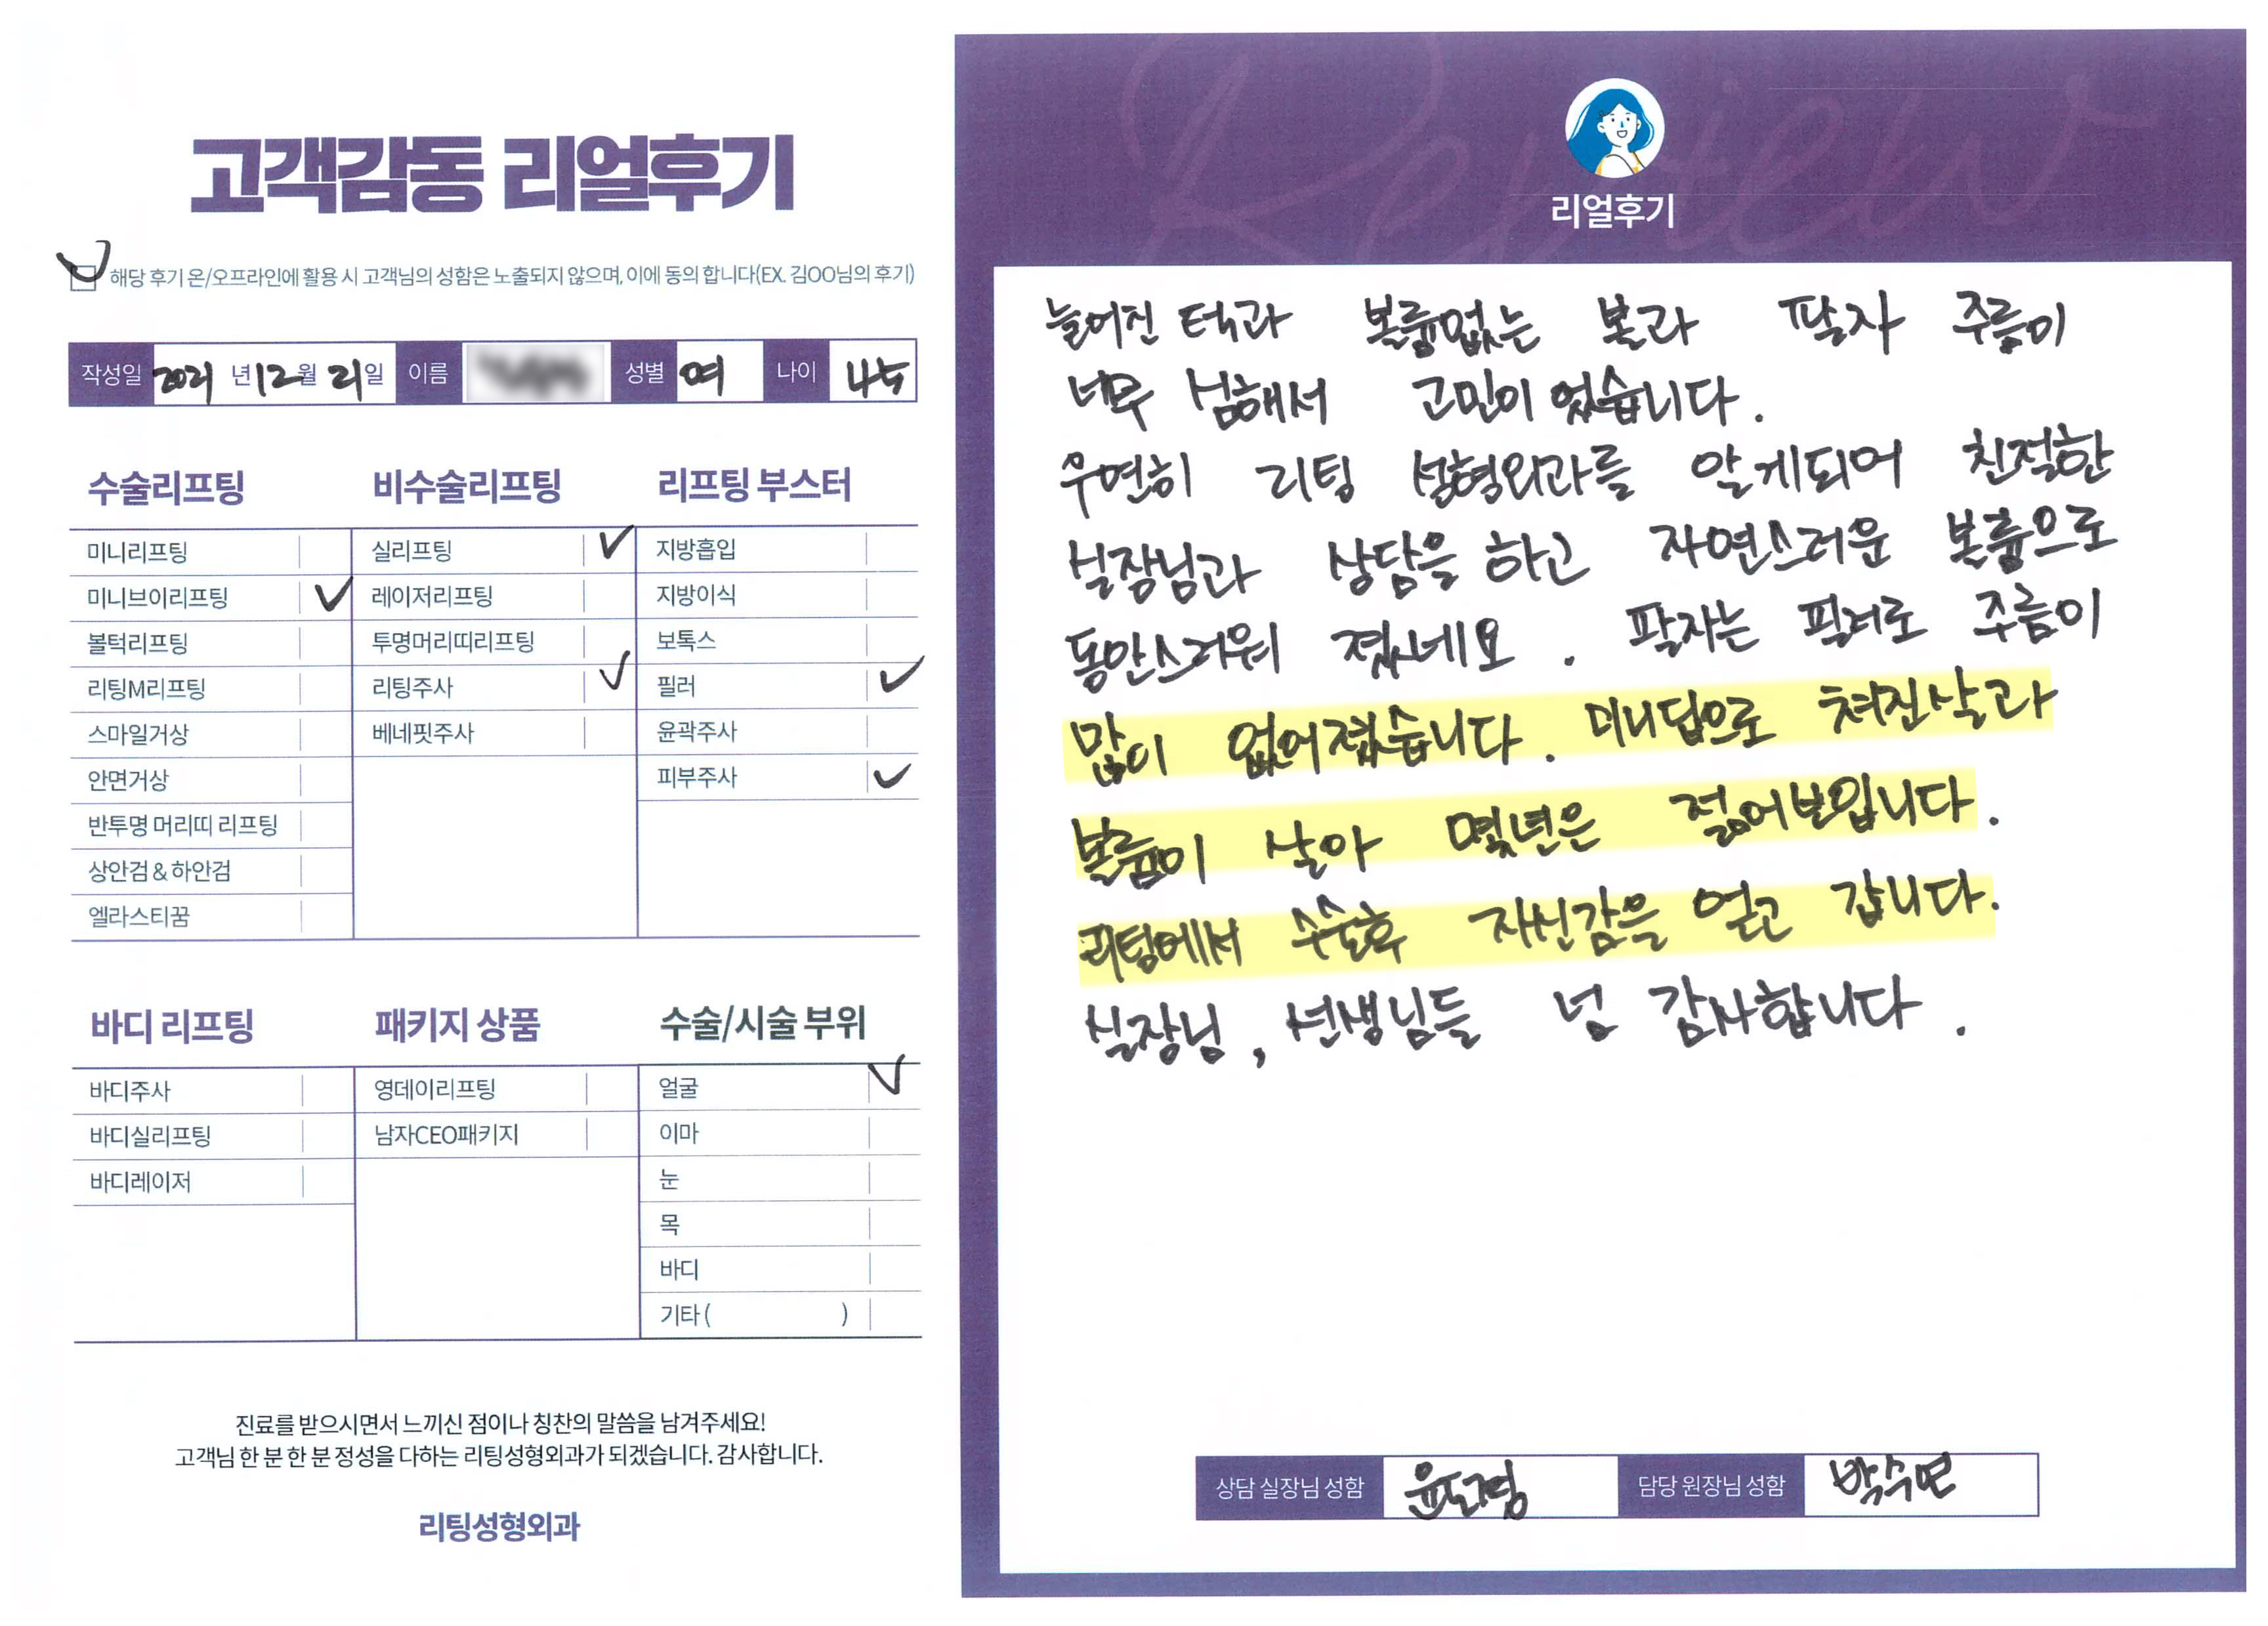 고객감동 리얼후기
해당 후기 온/오프라인에 활용 시 고객님의 성함은 노출되지 않으며, 이에 동의 합니다(EX. 김OO님의 후기)
작성일 2021 년 12 월 21 일 이름 성별 여 나이 45
수술리프팅
미니리프팅
미니브이리프팅
볼턱리프팅
리팅M리프팅
스마일거상
안면거상
반투명 머리띠 리프팅
상안검 & 하안검
엘라스티꿈
비수술리프팅
실리프팅
레이저리프팅
투명머리띠리프팅
리팅주사
베네핏주사
리프팅 부스터
지방흡입
지방이식
보톡스
필러
윤곽주사
피부주사
바디 리프팅
바디주사
바디실리프팅
바디레이저
패키지 상품
영데이리프팅
남자CEO패키지
수술/시술 부위
얼굴
이마
눈
목
바디
기타 ( )
진료를 받으시면서 느끼신 점이나 칭찬의 말씀을 남겨주세요!
고객님 한 분 한 분 정성을 다하는 리팅성형외과가 되겠습니다. 감사합니다.
리팅성형외과
Review
리얼후기
늘어진 턱과 볼륨없는 볼과 팔자 주름이
너무 심해서 고민이 었습니다.
우연히 리팅 성형외과를 알게되어 친절한
실장님과 상담을 하고 자연스러운 볼륨으로
동안스러워 졌네요. 팔자는 필러로 주름이
많이 없어졌습니다. 미니딥으로 쳐진살과
볼륨이 살아 몇년은 젊어보입니다.
리팅에서 수술후 자신감을 얻고 갑니다.
실장님, 선생님들 넘 감사합니다.
상담 실장님 성함 윤도경 담당 원장님 성함 박수연